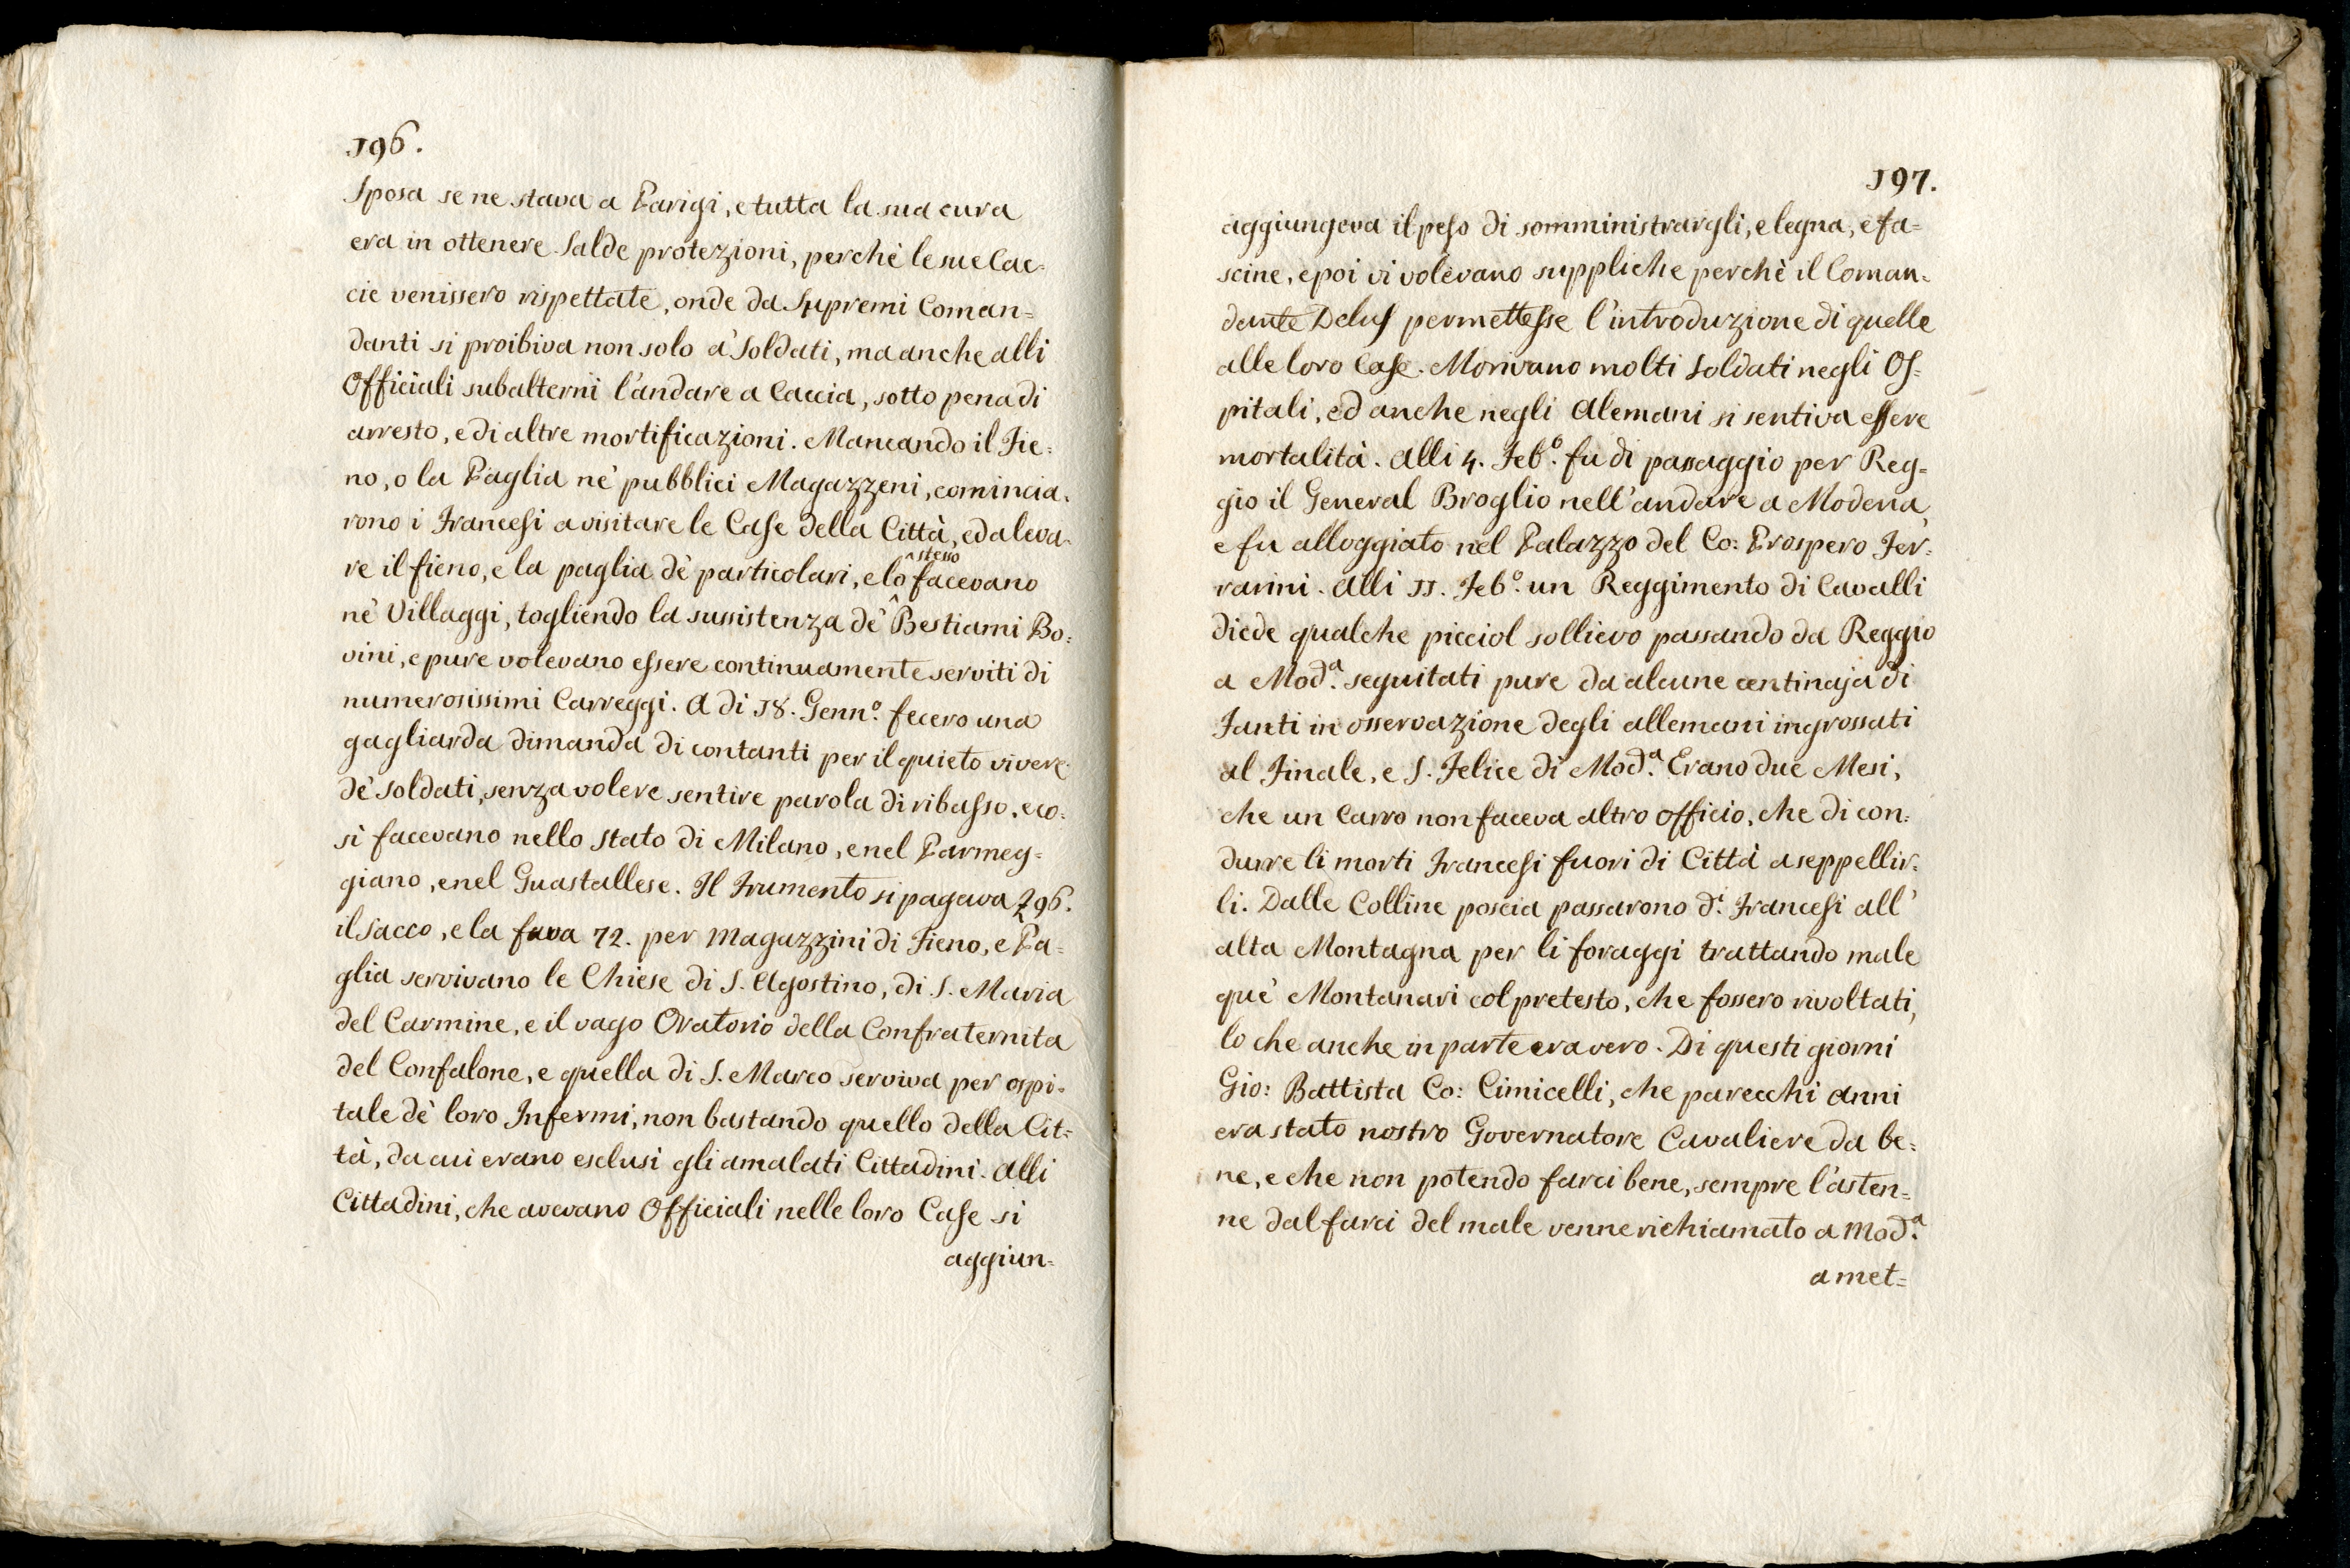 196.
Sposa se ne stava a Parigi, e tutta la sua cura
era in ottenere salde protezioni, perchè le sue Cac-
cie venissero rispettate, onde da Supremi Coman=
danti si proibiva non solo a' Soldati, ma anche alli
Officiali subalterni l'andare a Caccia, sotto pena di
arresto, e di altre mortificazioni. Mancando il Fie=
no, o la Paglia nè pubblici Magazzeni, comincia=
rono i Francesi a visitare le Case della Città, ed a leva=
re il fieno, e la paglia dè particolari, e lo ^stesso facevano
nè Villaggi, togliendo la sussistenza dè Bestiami Bo=
vini, e pure volevano essere continuamente serviti di
numerosissimi Carreggi. A di 18. Gennº. fecero una
gagliarda dimanda di contanti per il quieto vivere
dè soldati, senza volere sentire parola di ribasso, e co=
sì facevano nello stato di Milano, e nel Parmeg=
giano, e nel Guastallese. Il Frumento si pagava £96.
il Sacco, e la fava 72. per Magazzini di Fieno, e Pa=
glia servivano le Chiese di S. Agostino, di S. Maria
del Carmine, e il vago Oratorio della Confraternita
del Confalone, e quella di S. Marco serviva per ospi=
tale dè loro Infermi, non bastando quello della Cit=
tà, da cui erano esclusi gli amalati Cittadini. Alli
Cittadini, che avevano Officiali nelle loro Case si
aggiun=
197.
aggiungeva il peso di somministrargli, e legna, e fa=
scine, e poi vi volevano suppliche perchè il Coman=
dante Delus permettesse l'introduzione di quelle
alle loro Case. Morivano molti Soldati negli Os=
pitali, ed anche negli Alemani si sentiva essere
mortalità. Alli 4. Febº. fu di passaggio per Reg=
gio il General Broglio nell'andare a Modena,
e fu alloggiato nel Palazzo del Co: Prospero Fer=
rarini. Alli 11. Febº. un Reggimento di Cavalli
diede qualche picciol sollievo passando da Reggio
a Modª. seguitati pure da alcune centinaja di
Fanti in osservazione degli allemani ingrossati
al Finale, e S. Felice di Modª. Erano due Mesi,
che un Carro non faceva altro officio, che di con=
durre li morti Francesi fuori di Città a seppellir=
li. Dalle Colline poscia passarono dⁱ. Francesi all'
alta Montagna per li foraggi trattando male
què Montanari col pretesto, che fossero rivoltati,
lo che anche in parte era vero. Di questi giorni
Gio: Battista Co: Cimicelli, che parecchi anni
era stato nostro Governatore Cavaliere da be=
ne, e che non potendo farci bene, sempre l'asten=
ne dal farci del male venne richiamato a Modª.
a met=